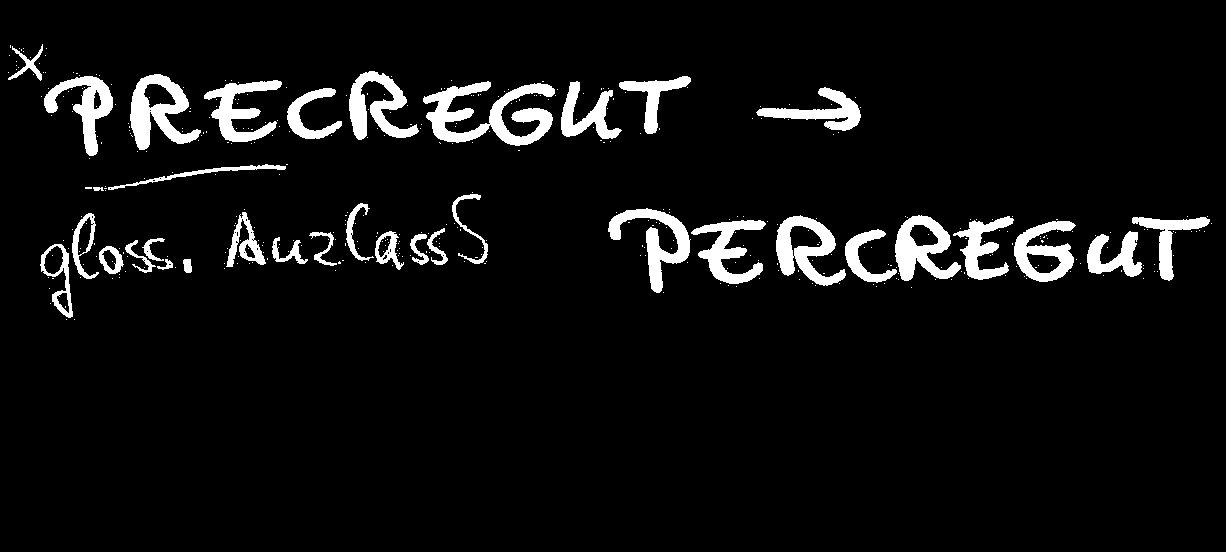 × PRECREGUT →
gloss. AuzlassS
PERCREGUT